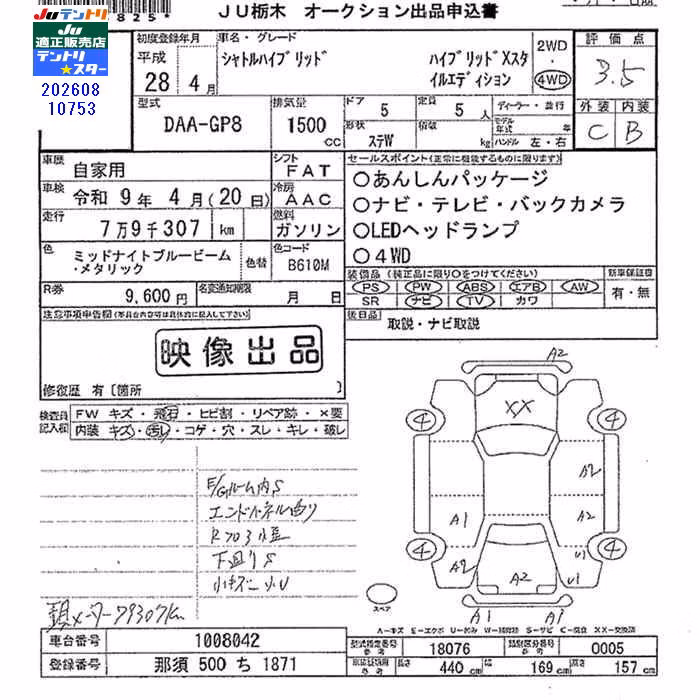 825*
JU栃木 オークション出品申込書
JUテントリ
JU適正販売店
テントリ
JU★スター
202608
10753
初度登録年月
平成
28 4月
車名・グレード
シャトルハイブリッド
ハイブリッドXスタ
イルエディション
2WD
・
4WD
評価点
3.5
外装 内装
C B
型式
DAA-GP8
排気量
1500
cc
ドア 5
定員 5 人
形状 ステW
積載 kg
ディーラー・並行
モデル年式 年
ハンドル 左・右
車歴
自家用
シフト
FAT
車検
令和 9年 4月(20日)
冷房
AAC
走行
7万9千307 km
燃料
ガソリン
色
ミッドナイトブルービーム
・メタリック
色替
色コード
B610M
R券
9,600円
名変通知期限
月 日
セールスポイント(正常に機能するものに限ります)
○あんしんパッケージ
○ナビ・テレビ・バックカメラ
○LEDヘッドランプ
○4WD
装備品(装正品に限り○をつけてください)
PS PW ABS エアB AW
SR ナビ TV カワ
新車保証書
有・無
後日品
取説・ナビ取説
注意事項申告欄
映像出品
修復歴 有〔箇所 〕
検査員
記入欄
FW キズ・飛石・ヒビ割・リペア跡・×要
内装 キズ・汚レ・コゲ・穴・スレ・キレ・破レ
E/Gルーム内S
エンドパネル曲り
下廻りS
メーター79307km
A2
XX
4
4
A2
A1
A2
4
4
A2
A2
U1
U1
A1
A1
スペア
A-キズ E-エクボ U-凹み W-補修跡 S-サビ C-腐食 XX-交換済
車台番号
1008042
登録番号
那須 500 ち 1871
型式指定番号
参考
18076
類別区分番号
参考
0005
長さ
440 cm
幅
169 cm
高さ
157 cm